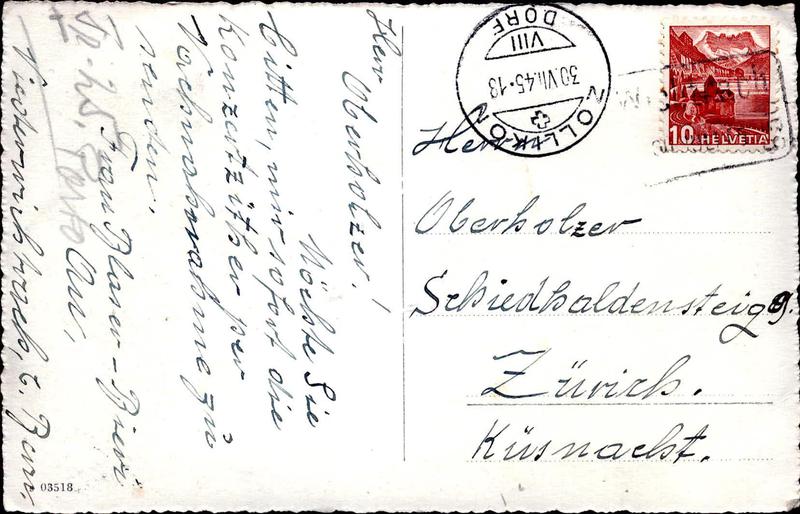 Herr Oberholzer!
Möchte Sie
bitten, mir sofort die
Konzertzither per
Nachnahme zu
senden.
Frau Blaser-Bieri
Au,
Niederwichtrach, k. Bern.
Fr. 25. Porto
03518
ZOLLIKON
30.VII.45-18
VIII
DORF
10 HELVETIA
Herr
Oberholzer
Schiedhaldensteig 9.
Zürich.
Küsnacht.